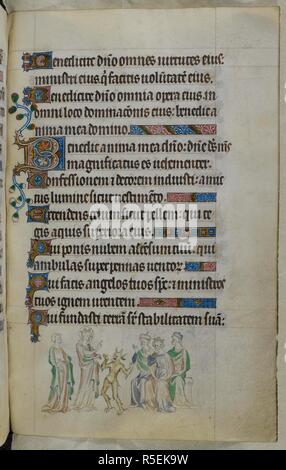 Benedicite dño omnes virtutes eius:
ministri eius qui facitis voluntatem eius.
Benedicite dño omnia opera eius: in
omni loco dominacionis eius: benedic a
nima mea domino.
Benedic anima mea dño: dñe ds ms
magnificatus es uehementer.
Confessionem et decorem induisti: amic
tus lumine sicut uestimento.
Extendens celum sicut pellem: qui te
gis aquis superiora eius.
Qui ponis nubem ascensum tuum: qui
ambulas super pennas uentorum.
Qui facis angelos tuos spc: et ministros
tuos ignem urentem.
Qui fundasti terram sr stabilitatem suam:
alamy
Image ID: R5EK9W
www.alamy.com